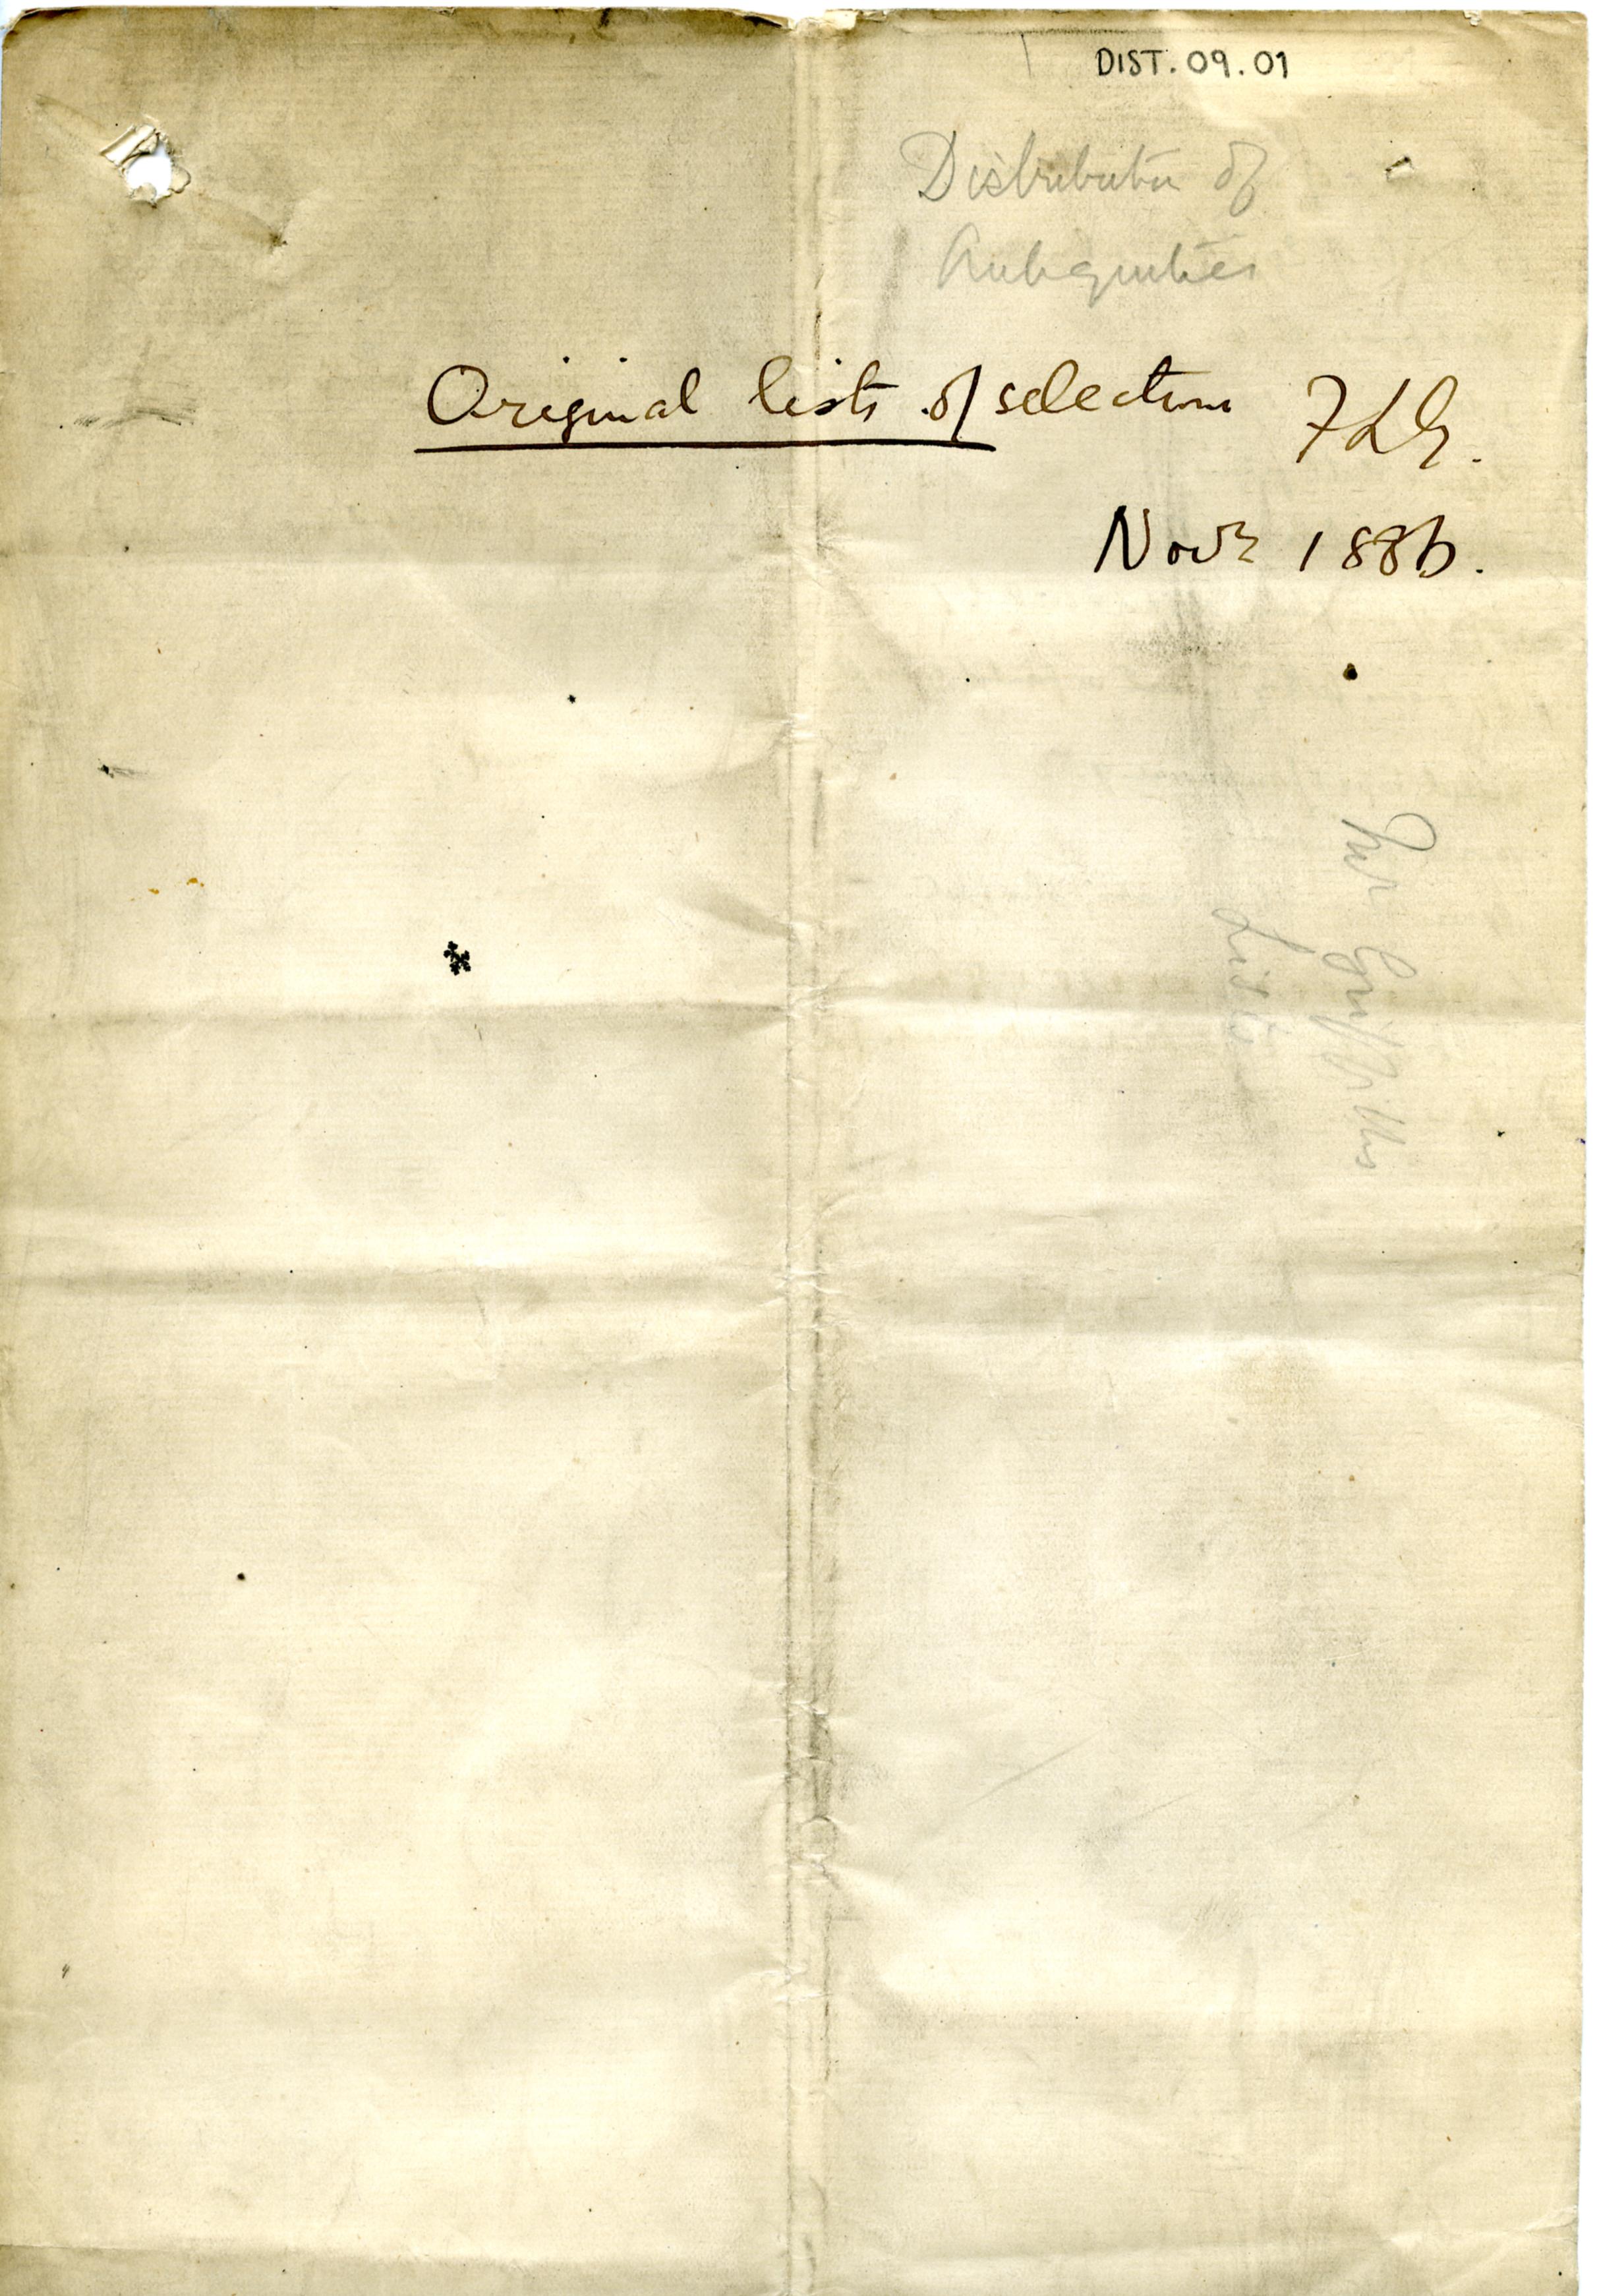 DIST.09.01
Distribution of
Antiquities
Original lists of selections FLG.
Novr 1886.
Mr Griffiths
Lists